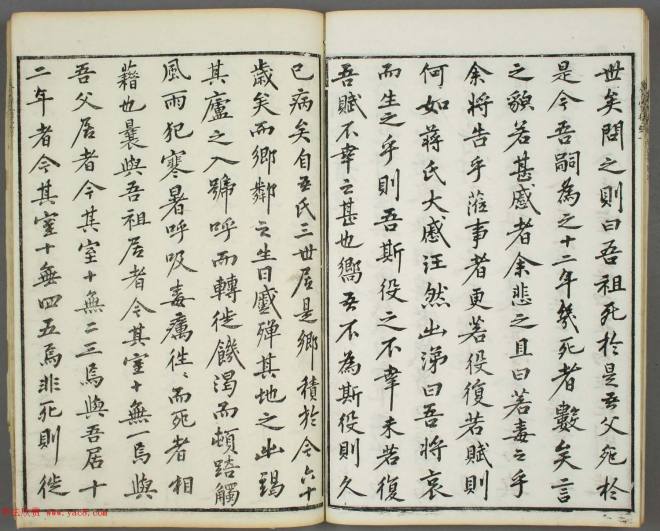 世矣問之則曰吾祖死於是吾父死於
是今吾嗣為之十二年幾死者數矣言
之貌若甚慼者余悲之且曰若毒之乎
余將告乎蒞事者更若役復若賦則
何如蔣氏大慼汪然出涕曰吾將哀
而生之乎則吾斯役之不幸未若復
吾賦不幸之甚也嚮吾不為斯役則久
已病矣自吾氏三世居是鄉積於今六十
歲矣而鄉鄰之生日蹙殫其地之出竭
其廬之入號呼而轉徙饑渴而頓踣觸
風雨犯寒暑呼吸毒癘往〻而死者相
藉也曩與吾祖居者今其室十無一焉與
吾父居者今其室十無二三焉與吾居十
二年者今其室十無四五焉非死則徙
www.yac8.com